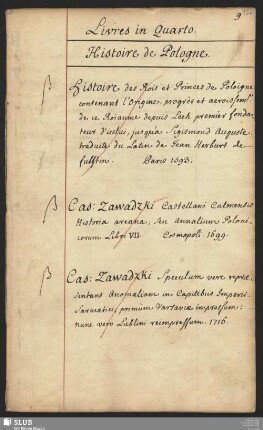 Livres in Quarto.
Histoire de Pologne.
β Histoire des Rois et Princes de Poloigne
contenant l'Origine, progrès et accroissem.t
de ce Roiaume depuis Lech premier fonda-
teur d'icelui, jusqu'a Sigismond Auguste
traduite du Latin de Jean Herburt de
fulstin. Paris 1573.
β Cas: Zawadzki Castellani Culmensis
Historia arcana; seu Annalium Poloni-
corum Libri VII. Cosmopoli. 1699.
β Cas: Zawadzki Speculum vere repræ-
sentans Anomaliam in Capitibus Imperii
Sarmatici; primùm Varsaviæ impressum:
nunc vero Lublini reimpressum. 1716.
SLUB